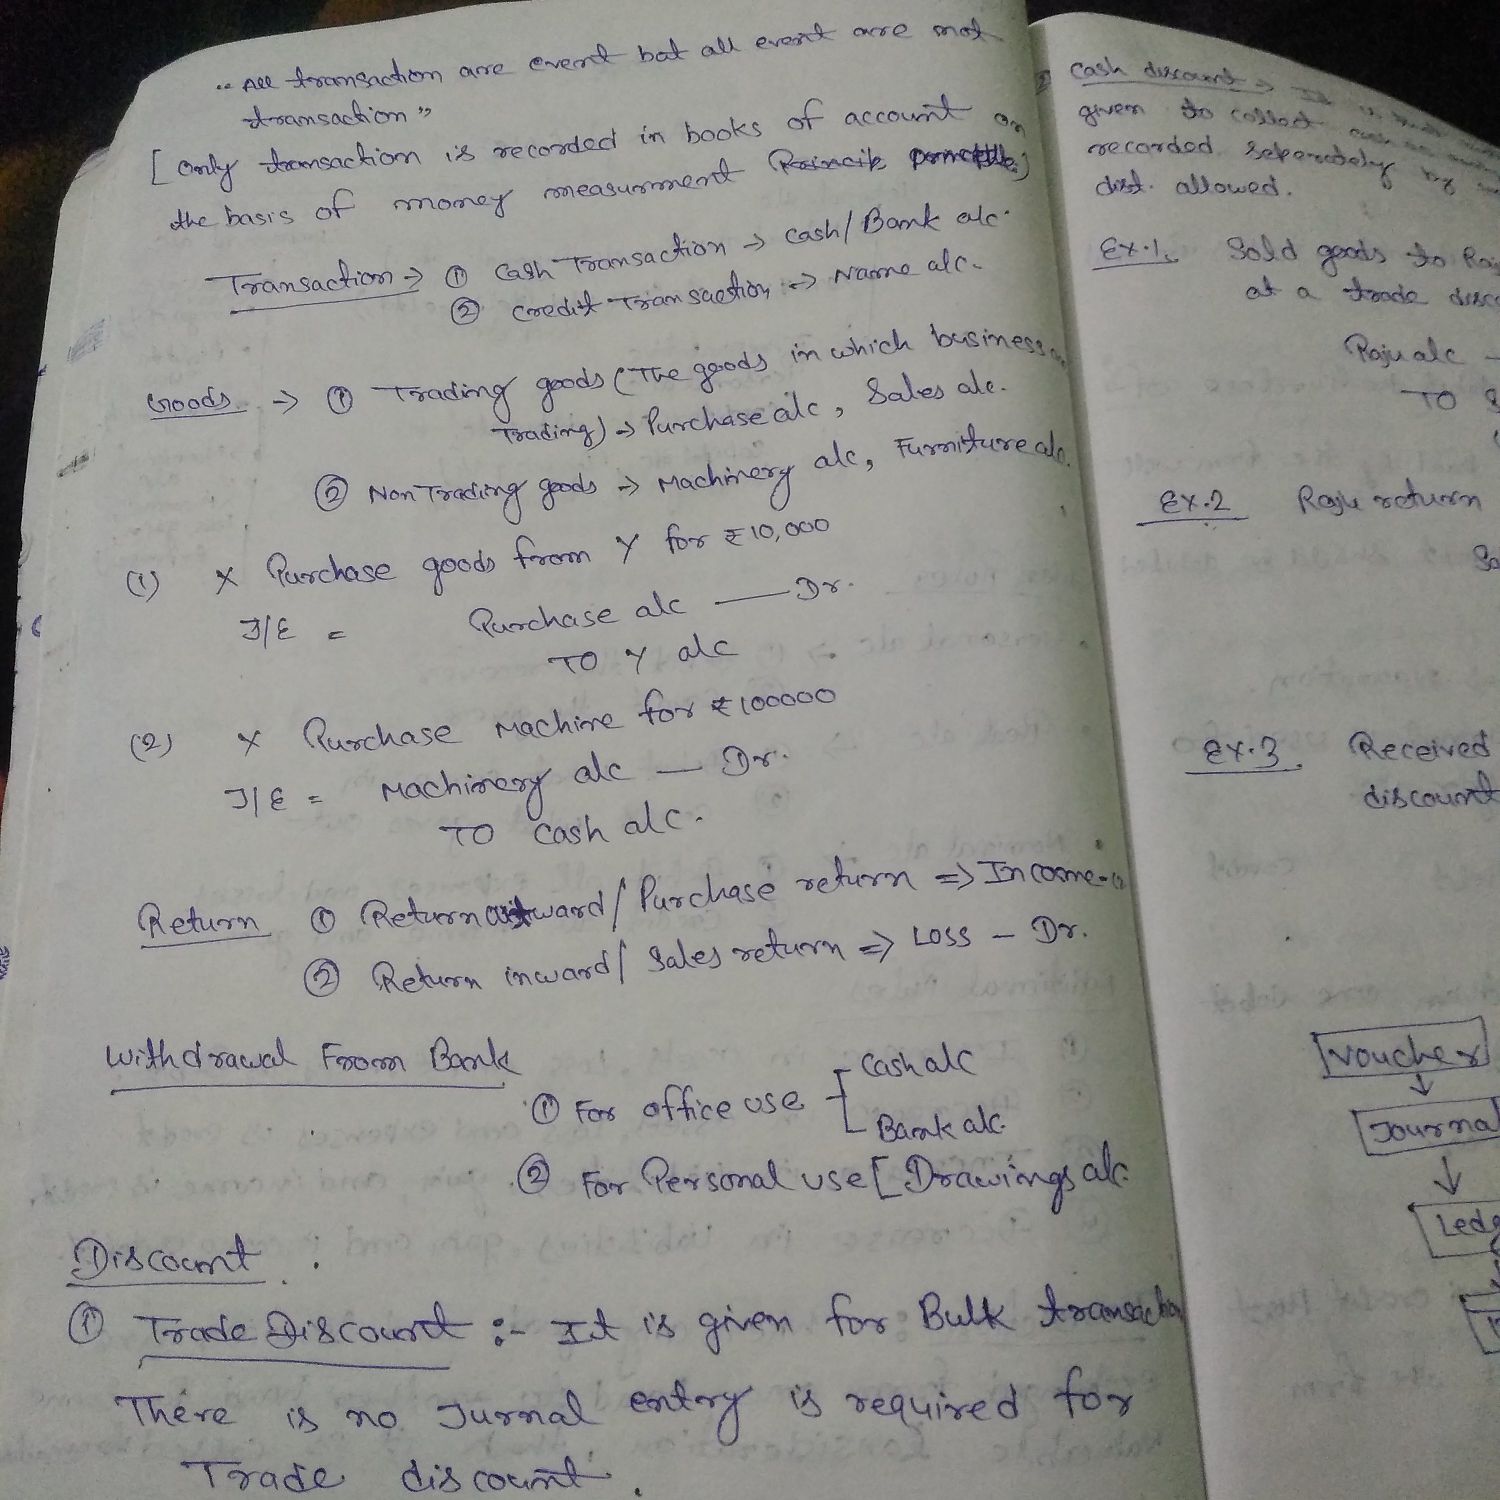 "All transaction are event bat all event are not
transaction"
[only transaction is recorded in books of account on
the basis of money measurment
Transaction → ① Cash Transaction → cash/Bank a/c.
② Credit Transaction → Name a/c.
Goods → ① Trading goods (The goods in which business
Trading) → Purchase a/c, Sales a/c.
② Non Trading goods → Machinery a/c, Furniture a/c.
(1) X Purchase goods from Y for ₹10,000
J/E = Purchase a/c — Dr.
TO Y a/c
(2) X Purchase Machine for ₹100000
J/E = Machinery a/c — Dr.
TO Cash a/c.
Return ① Return outward/Purchase return ⇒ Income
② Return inward/Sales return ⇒ Loss - Dr.
Withdrawal From Bank
① For office use [ Cash a/c
Bank a/c.
② For Personal use [Drawings a/c.
Discount
① Trade Discount :- It is given for Bulk transaction
There is no Jurnal entry is required for
Trade discount.
Cash discount → It is
given to collect
recorded seperately by
dist. allowed.
Ex.1. Sold goods to
at a trade
Raju a/c
TO
Ex.2 Raju return
Ex.3. Received
discount
Voucher
↓
Journal
↓